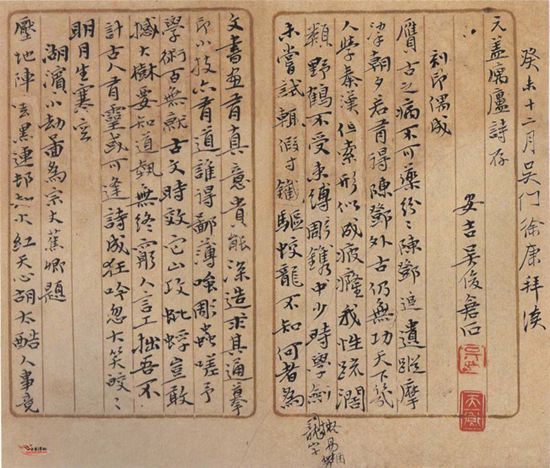 癸未十二月吳門徐康拜讀
元蓋寓廬詩存
安吉吳俊倉石
刻印偶成
贋古之病不可藥紛〻陳鄧追遺蹤摩
挲朝夕若有得陳鄧外古仍無功天下幾
人學秦漢但索形似成疲癃我性疏闊
類野鶴不受束縛雕鐫中少時學劍
未嘗試輒假寸鐵驅蛟龍不知何者為
龍字
文書畫有真意貴能深造求其通摹
印小技亦有道誰得鄙薄嗤雕蟲嗟予
學術百無就古文時效它山攻蚍蜉豈敢
撼大樹要知道藝無終窮人言工拙吾不
計古人有靈或可逢詩成狂吟忽大笑皎〻
明月生寒空
湖濱小劫圖為宗大蕉卿題
壓地陣雲黑連邨劫火紅天心胡太酷人事竟